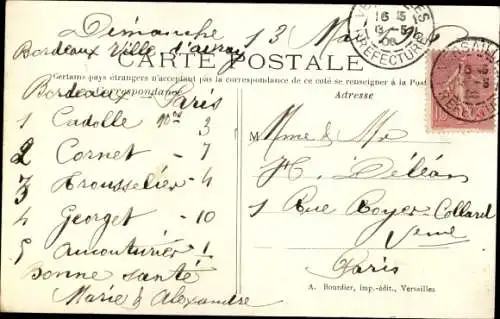 Dimanche 13 Mai
Bordeaux Ville d'avray
CARTE POSTALE
Certains pays étrangers n'acceptant pas la correspondance de ce côté se renseigner à la Poste
Correspondance
Adresse
Bordeaux - Paris
1 Cadolle 3
2 Cornet - 7
3 Trousselier - 4
4 Georget - 10
5 Amouturier 1
Bonne santé
Marie & Alexandre
VERSAILLES
16 15
13 - 5
06
PREFECTURE
M
Mme & Mr
H. Déléan
1 Rue Royer-Collard
Vème
Paris
10
A. Bourdier, imp.-édit., Versailles